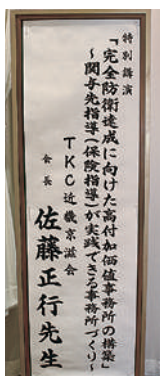 特別講演
「完全防衛達成に向けた高付加価値事務所の構築」
～関与先指導(保険指導)が実践できる事務所づくり～
TKC近畿京滋会
会長 佐藤正行先生